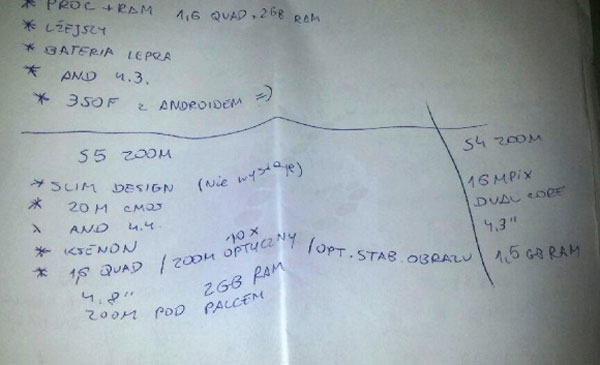 * PROC + RAM 1,6 QUAD, 2GB RAM
* LŻEJSZY
* BATERIA LEPRA
* AND 4.3.
* 350F z ANDROIDEM =)
S5 ZOOM
* SLIM DESIGN (Nie wystaje)
* 20M CMOS
* AND 4.4.
* KSENON
* 1,6 QUAD / ZOOM 10x OPTYCZNY / OPT. STAB. OBRAZU
4,8" 2GB RAM
ZOOM POD PALCEM
S4 ZOOM
16MPIX
DUAL CORE
4,3"
1,5 GB RAM